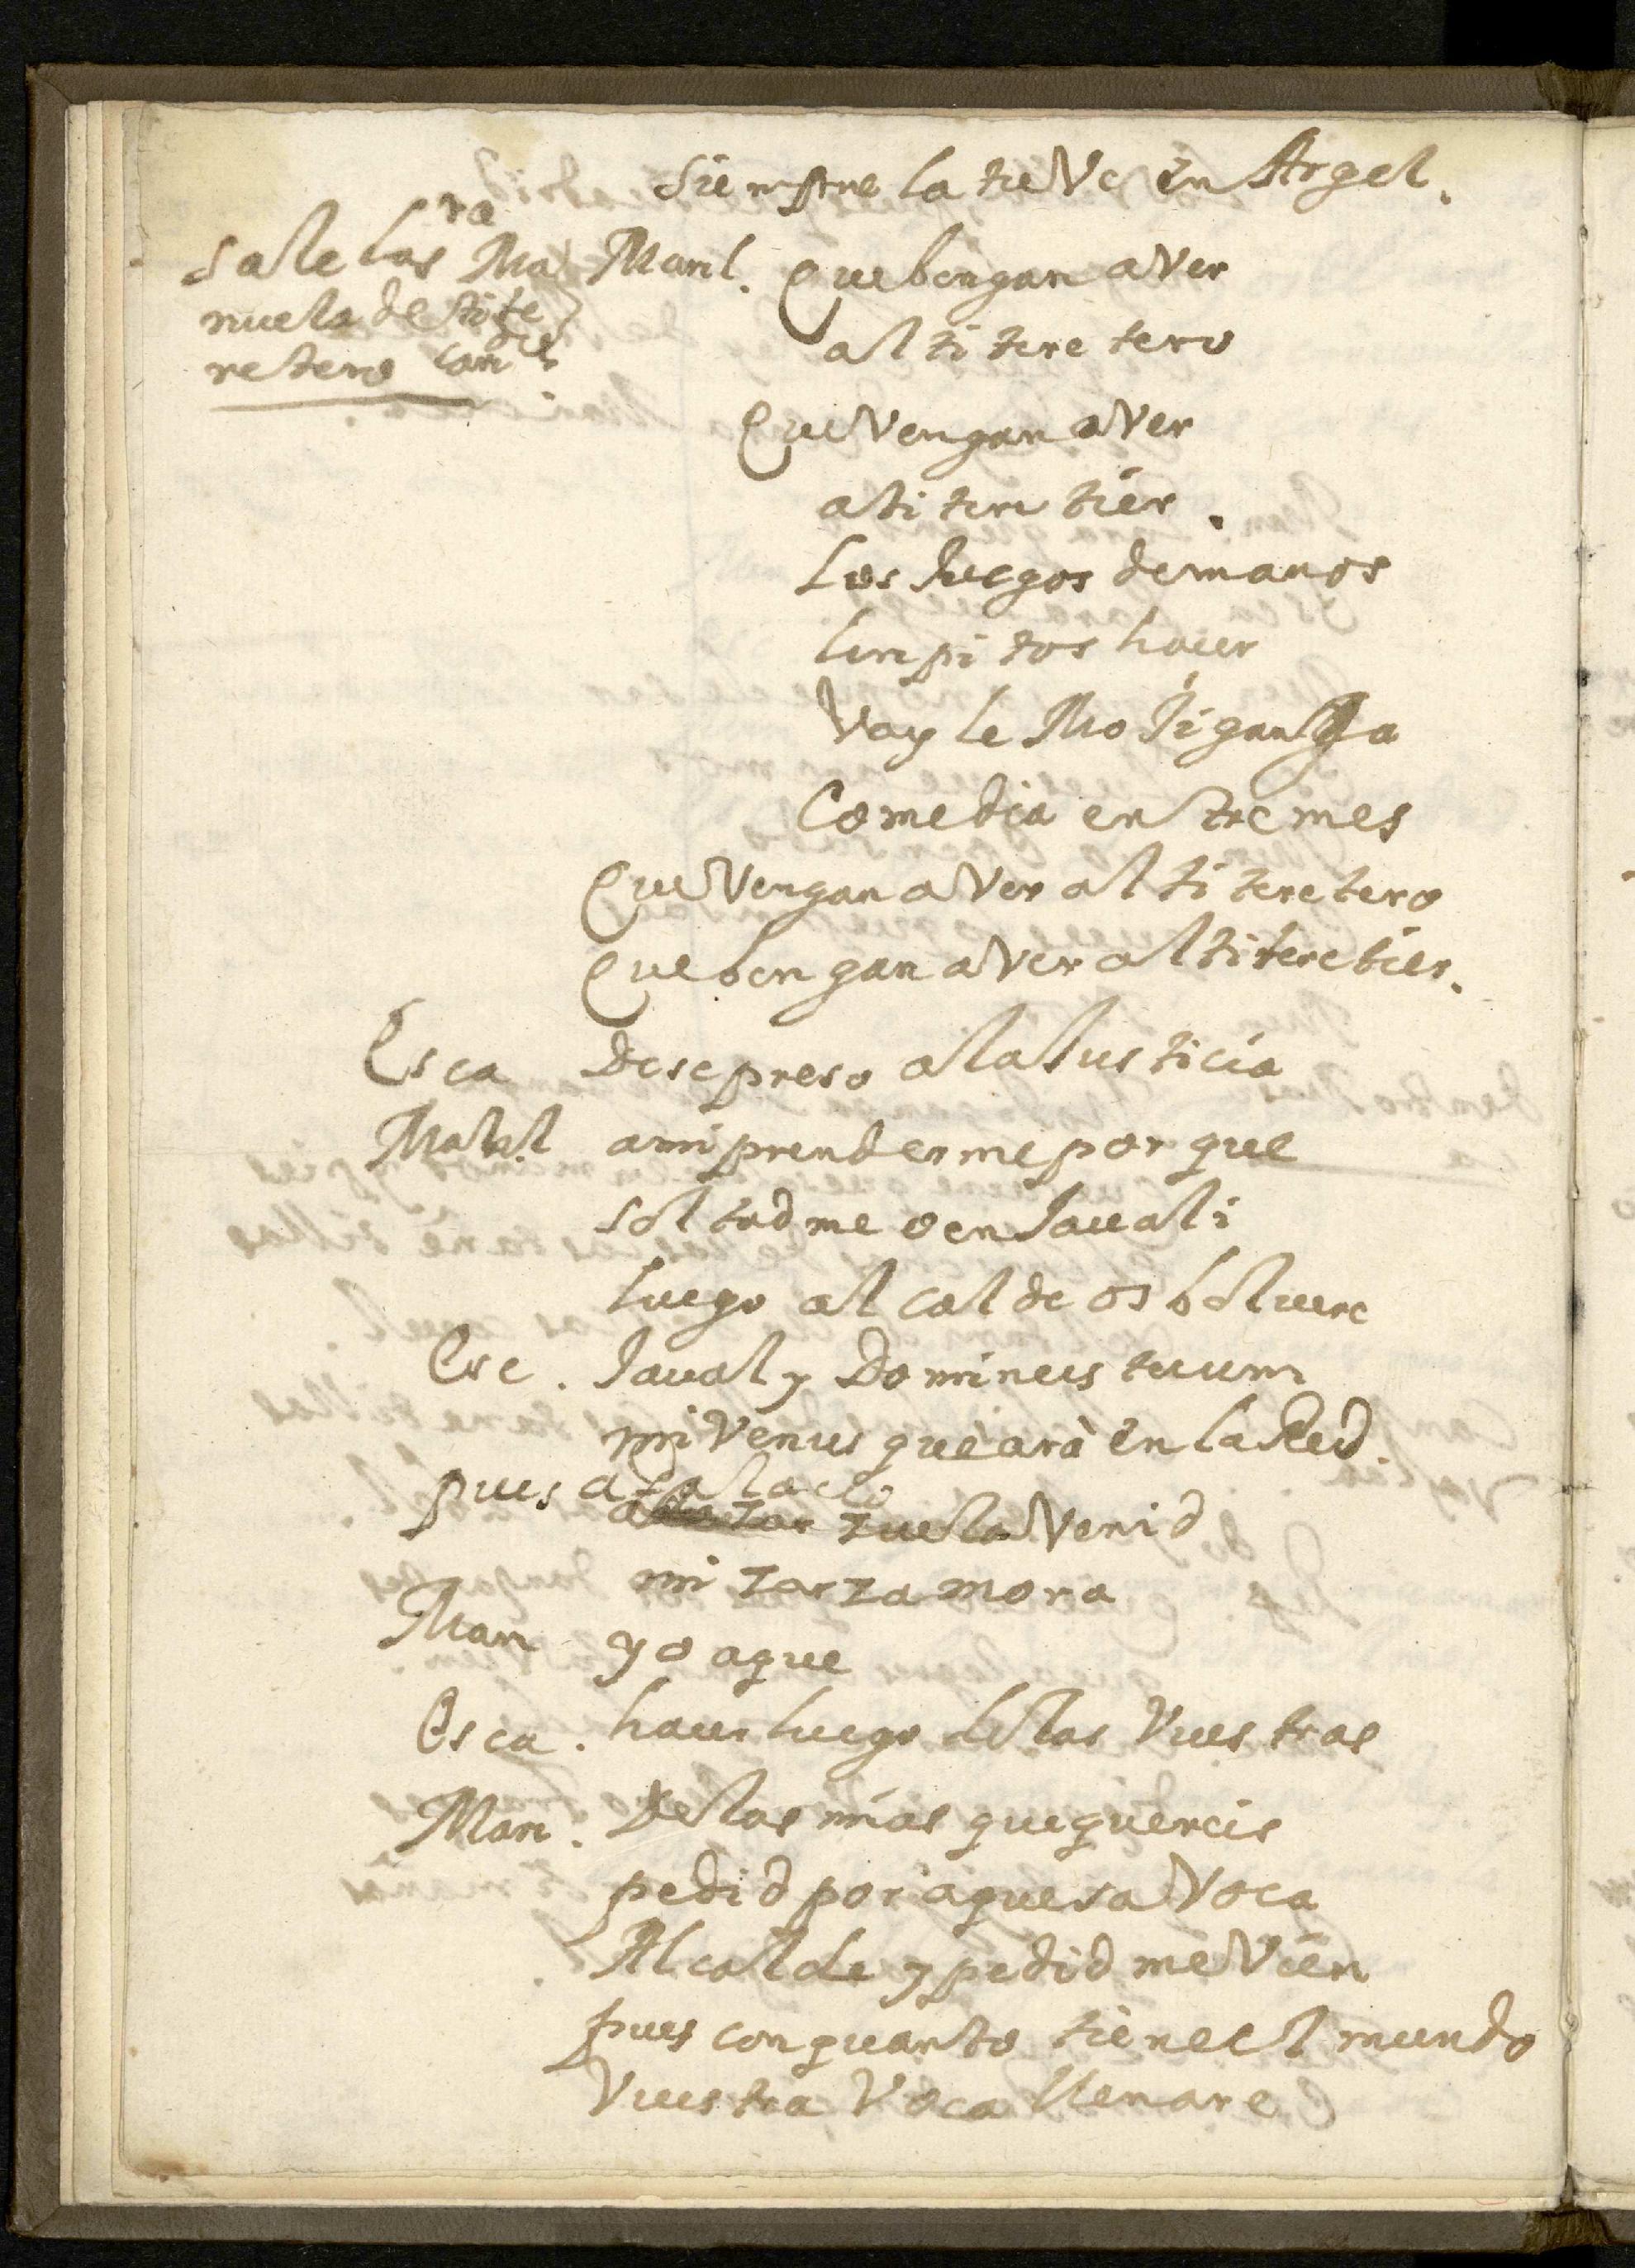 Siempre la tuve en Argel.
Sale la sra Ma
nuela de titi
retero can.do
Manl. Que bengan a Ver
al titeretero
Que Vengan a Ver
a titiritier.
Los Juegos de manos
limpitos hacer
Vayle Mojiganga
Comedia entremes
Que Vengan a Ver al titeretero
Que bengan a Ver al titeretier.
Esca dese preso a la Justicia
Manl a mi prenderme por que
soltadme o en Javali
luego alcalde os bolvere
Esc. Javaly Domineus tuum
mi Venus que ara en la Red.
pues a
a la Zarzuela Venid
mi Zarzamora
Man yo a que
Esca. hacer luego de las Vuestras
Man. De las mias que quereis
pedid por aquesa Voca
Alcalde y pedidme Vien
pues con quanto tiene el mundo
Vuestra Voca llenare